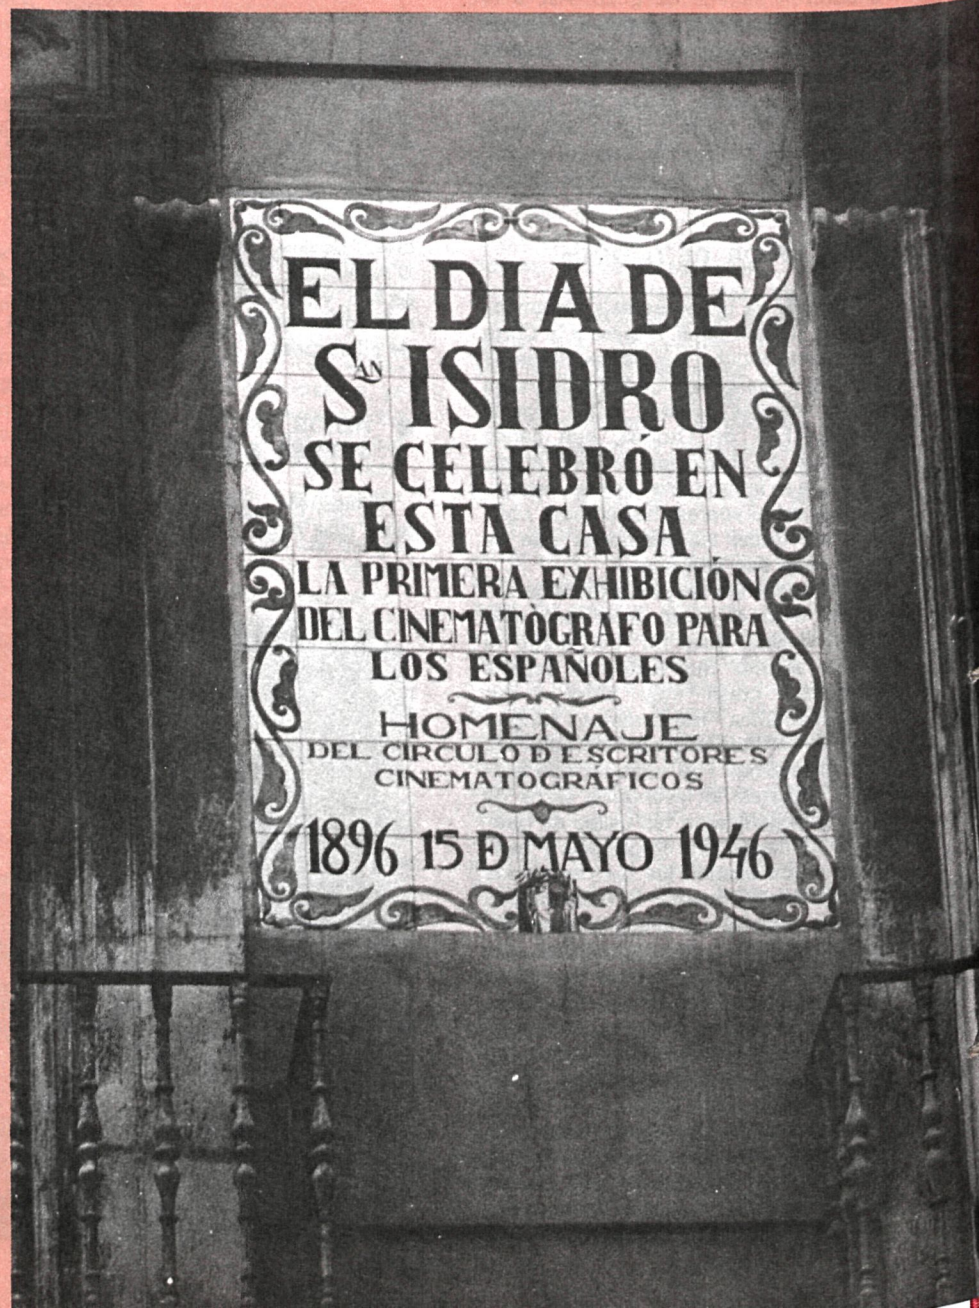 EL DIA DE
SAN ISIDRO
SE CELEBRÓ EN
ESTA CASA
LA PRIMERA EXHIBICIÓN
DEL CINEMATÒGRAFO PARA
LOS ESPAÑOLES
HOMENAJE
DEL CÍRCULO D ESCRITORES
CINEMATOGRÁFICOS
1896 15 D MAYO 1946